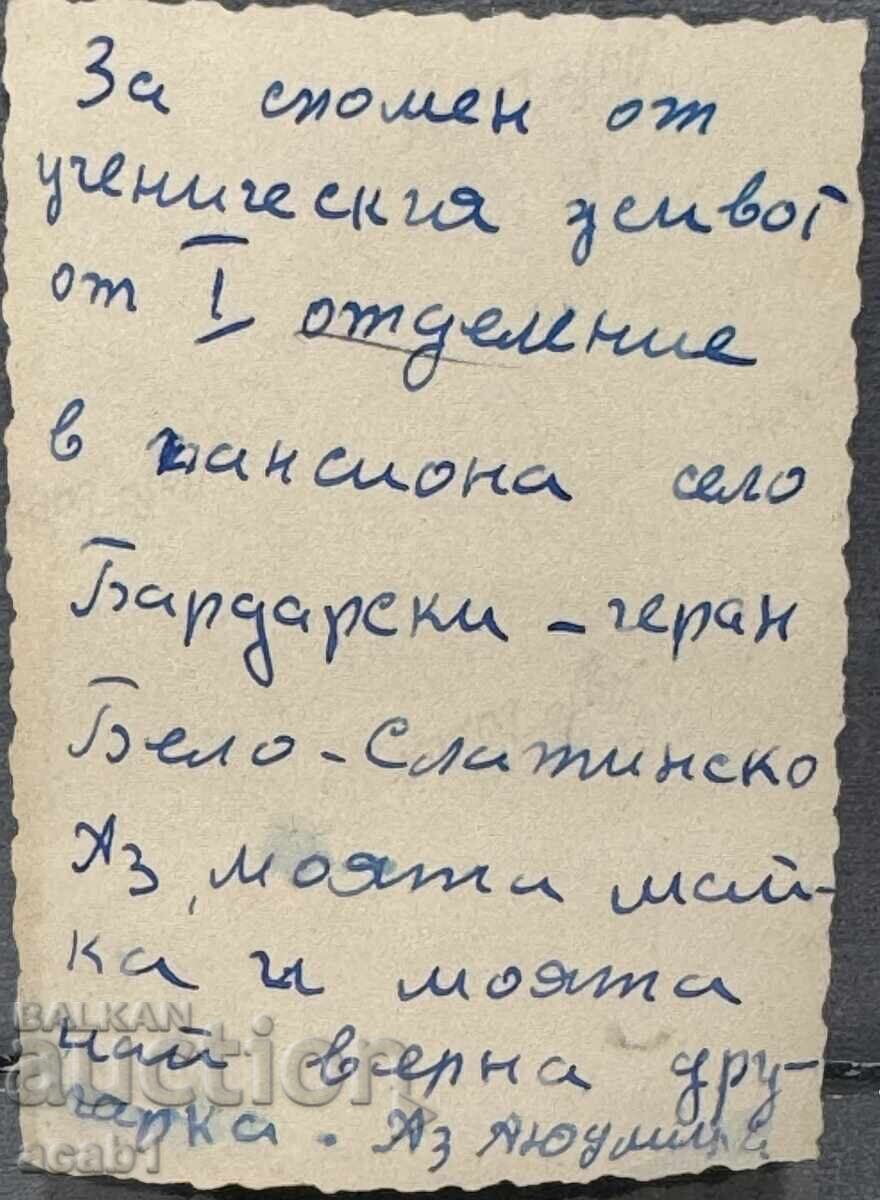 За спомен от
ученическия живот
от I отделение
в пансиона село
Бардарски - геран
Бело - Слатинско
Аз, моята май-
ка и моята
най вярна дру-
гарка. Аз Людмила
BALKAN
auction
acab1